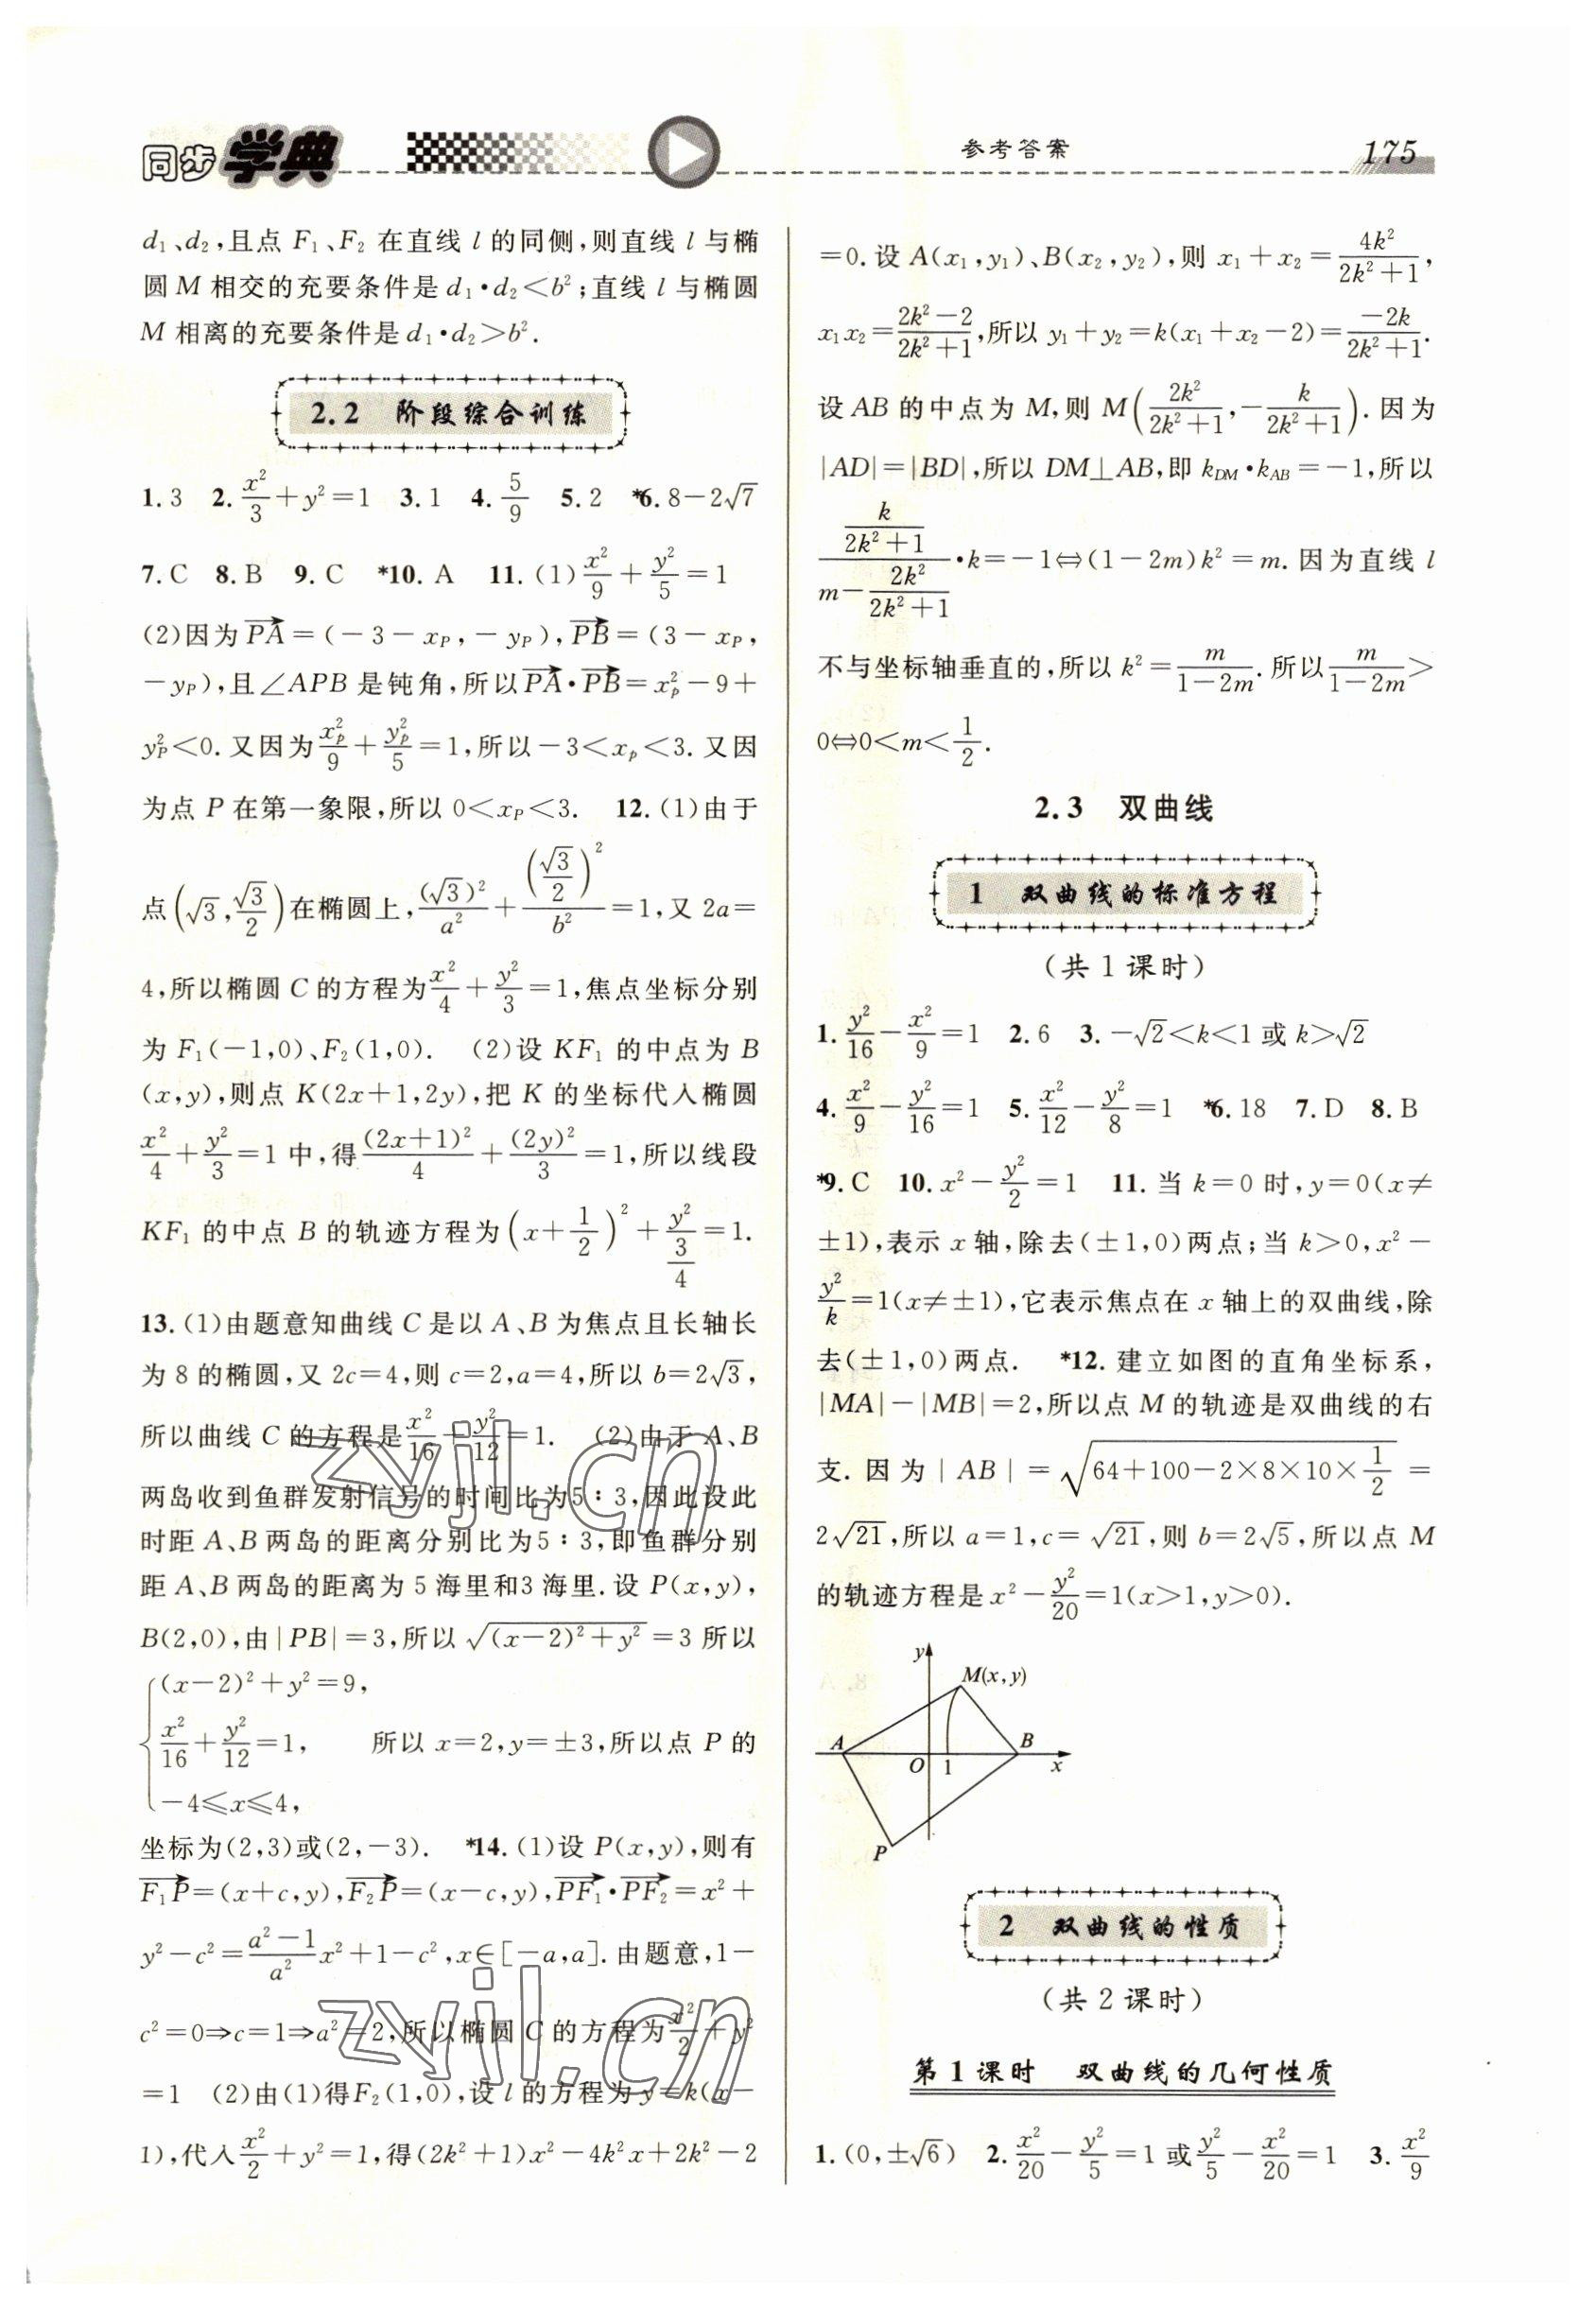 同步学典
参考答案
175
d₁、d₂,且点 F₁、F₂ 在直线 l 的同侧,则直线 l 与椭
圆 M 相交的充要条件是 d₁·d₂<b²;直线 l 与椭圆
M 相离的充要条件是 d₁·d₂>b².
2.2 阶段综合训练
1. 3 2. x²/3+y²=1 3. 1 4. 5/9 5. 2 *6. 8-2√7
7. C 8. B 9. C *10. A 11. (1) x²/9+y²/5=1
(2)因为 PA→=(-3-x_P,-y_P),PB→=(3-x_P,
-y_P),且∠APB 是钝角,所以 PA→·PB→=x_p²-9+
y_P²<0. 又因为 x_p²/9+y_p²/5=1,所以-3<x_p<3. 又因
为点 P 在第一象限,所以 0<x_P<3. 12. (1)由于
点(√3,√3/2)在椭圆上,(√3)²/a²+(√3/2)²/b²=1,又 2a=
4,所以椭圆 C 的方程为 x²/4+y²/3=1,焦点坐标分别
为 F₁(-1,0)、F₂(1,0). (2)设 KF₁ 的中点为 B
(x,y),则点 K(2x+1,2y),把 K 的坐标代入椭圆
x²/4+y²/3=1 中,得(2x+1)²/4+(2y)²/3=1,所以线段
KF₁ 的中点 B 的轨迹方程为(x+1/2)²+y²/(3/4)=1.
13. (1)由题意知曲线 C 是以 A、B 为焦点且长轴长
为 8 的椭圆,又 2c=4,则 c=2,a=4,所以 b=2√3,
所以曲线 C 的方程是 x²/16+y²/12=1. (2)由于 A、B
两岛收到鱼群发射信号的时间比为5∶3,因此设此
时距 A、B 两岛的距离分别比为5∶3,即鱼群分别
距 A、B 两岛的距离为 5 海里和3 海里. 设 P(x,y),
B(2,0),由|PB|=3,所以 √((x-2)²+y²)=3 所以
(x-2)²+y²=9,
x²/16+y²/12=1, 所以 x=2,y=±3,所以点 P 的
-4≤x≤4,
坐标为(2,3)或(2,-3). *14. (1)设 P(x,y),则有
F₁P→=(x+c,y),F₂P→=(x-c,y),PF₁→·PF₂→=x²+
y²-c²=(a²-1)/a² x²+1-c²,x∈[-a,a]. 由题意,1-
c²=0⇒c=1⇒a²=2,所以椭圆 C 的方程为 x²/2+y²
=1 (2)由(1)得F₂(1,0),设 l 的方程为 y=k(x-
1),代入 x²/2+y²=1,得(2k²+1)x²-4k²x+2k²-2
=0. 设 A(x₁,y₁)、B(x₂,y₂),则 x₁+x₂=4k²/(2k²+1),
x₁x₂=(2k²-2)/(2k²+1),所以 y₁+y₂=k(x₁+x₂-2)=-2k/(2k²+1).
设 AB 的中点为 M,则 M(2k²/(2k²+1),-k/(2k²+1)). 因为
|AD|=|BD|,所以 DM⊥AB,即 k_DM·k_AB=-1,所以
(k/(2k²+1))/(m-2k²/(2k²+1))·k=-1⇔(1-2m)k²=m. 因为直线 l
不与坐标轴垂直的,所以 k²=m/(1-2m). 所以 m/(1-2m)>
0⇔0<m<1/2.
2.3 双曲线
1 双曲线的标准方程
(共 1 课时)
1. y²/16-x²/9=1 2. 6 3. -√2<k<1 或 k>√2
4. x²/9-y²/16=1 5. x²/12-y²/8=1 *6. 18 7. D 8. B
*9. C 10. x²-y²/2=1 11. 当 k=0 时,y=0(x≠
±1),表示 x 轴,除去(±1,0)两点;当 k>0,x²-
y²/k=1(x≠±1),它表示焦点在 x 轴上的双曲线,除
去(±1,0)两点. *12. 建立如图的直角坐标系,
|MA|-|MB|=2,所以点 M 的轨迹是双曲线的右
支. 因为|AB|=√(64+100-2×8×10×1/2)=
2√21,所以 a=1,c=√21,则 b=2√5,所以点 M
的轨迹方程是 x²-y²/20=1(x>1,y>0).
y
M(x,y)
A
B
O
1
x
P
2 双曲线的性质
(共 2 课时)
第 1 课时 双曲线的几何性质
1. (0,±√6) 2. x²/20-y²/5=1 或 y²/5-x²/20=1 3. x²/9
zyjl.cn
zyjl.cn